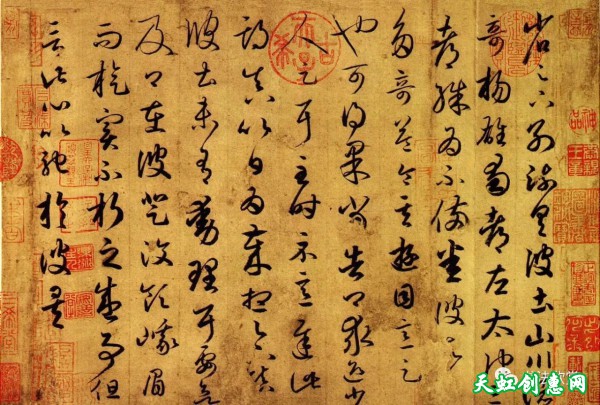 省足下別疏具彼土山川諸
奇揚雄蜀都左太沖三
都殊為不備悉彼故為
多奇益令其遊目意足
也可得果當告卿求迎少
人足耳至時示意遲此
期真以日為歲想足下鎮
彼土未有動理耳要欲
及卿在彼登汶領峨眉
而旋實不朽之盛事但
言此心以馳於彼矣
天虹创惠网